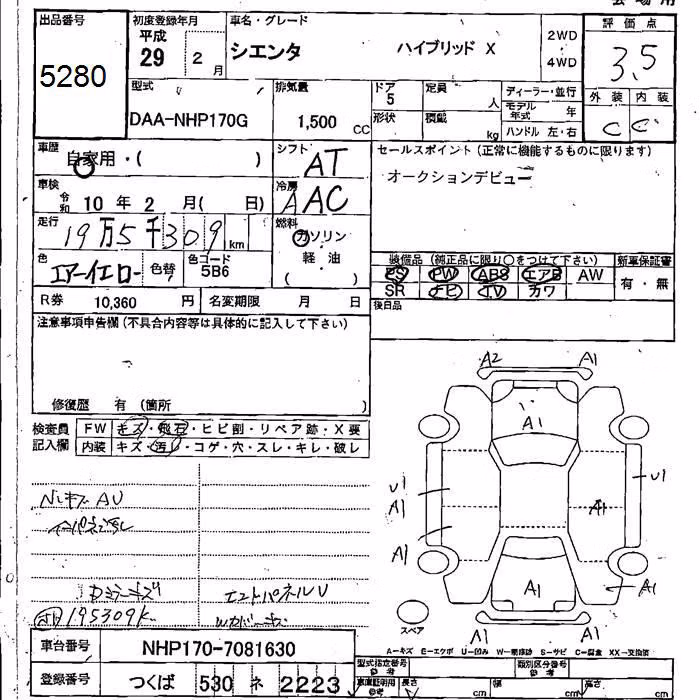 出品番号
5280
初度登録年月
平成
29 2 月
車名・グレード
シエンタ ハイブリッド X
2WD
・
4WD
評 価 点
3.5
外 装 内 装
C C
型式
DAA-NHP170G
排気量
1,500 CC
ドア
5
定員
人
形状
積載
kg
ディーラー・並行
モデル年式 年
ハンドル 左・右
車歴
自家用・( )
シフト
AT
車検
令和 10 年 2 月( 日)
冷房
A AC
走行
19万5千309 km
燃料
ガソリン
軽・油
( )
色
エアーイエロー 色替
色コード
5B6
R券 10,360 円
名変期限 月 日
セールスポイント(正常に機能するものに限ります)
オークションデビュー
装備品(純正品に限り○をつけて下さい)
PS PW ABS エアB AW
SR ナビ TV カワ
新車保証書
有・無
後日品
注意事項申告欄(不具合内容等は具体的に記入して下さい)
修復歴 有 (箇所 )
検査員
記入欄
FW キズ・飛石・ヒビ割・リペア跡・X要
内装 キズ・汚レ・コゲ・穴・スレ・キレ・破レ
195309K
エンドパネルU
A2 A1
A1
U1
A1
A1
U1
A1
A1
A1
A1 A1
スペア
A-キズ E-エクボ U-凹み W-補修跡 S-サビ C-腐食 XX-交換済
車台番号
NHP170-7081630
登録番号
つくば 530 ネ 2223
型式指定番号
参考
類別区分番号
車庫証明用
参考
長さ cm
幅 cm
高さ cm